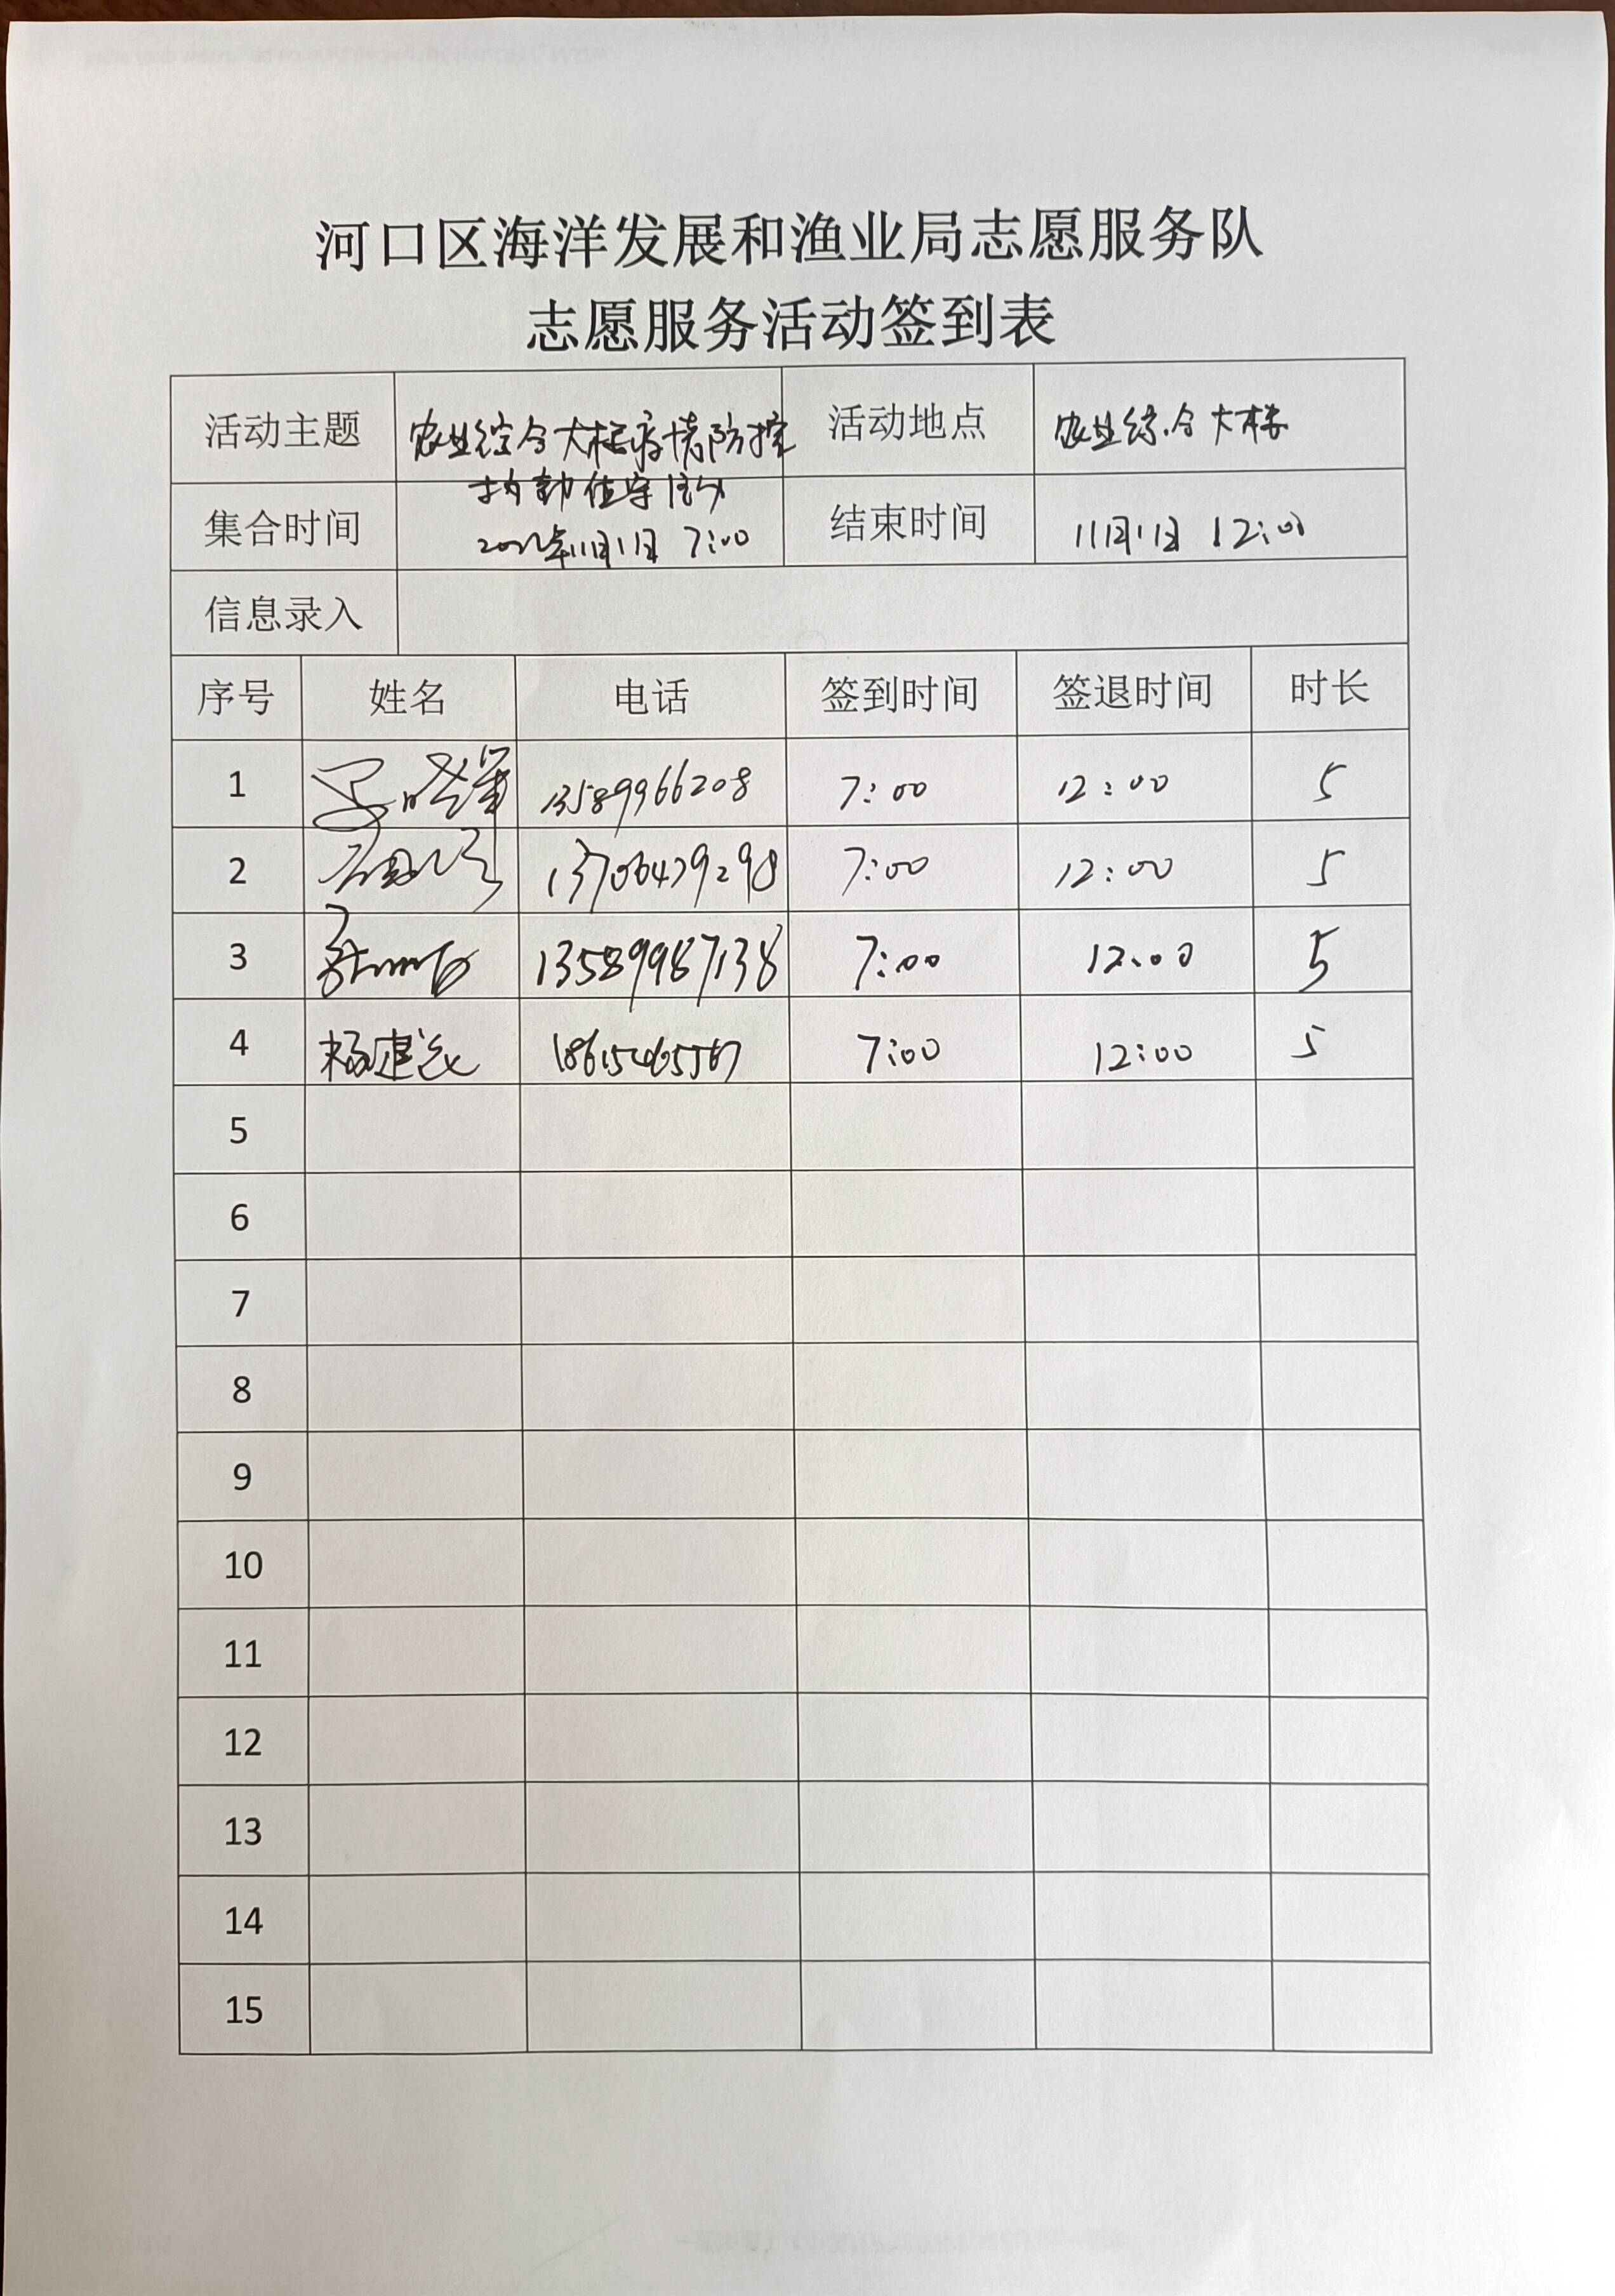 河口区海洋发展和渔业局志愿服务队
志愿服务活动签到表
活动主题 农业综合大楼疫情防控 活动地点 农业综合大楼
执勤值守
集合时间 2022年11月11日 7:00 结束时间 11月11日 12:00
信息录入
序号 姓名 电话 签到时间 签退时间 时长
1 13589966208 7:00 12:00 5
2 13706479298 7:00 12:00 5
3 13589987138 7:00 12:00 5
4 7:00 12:00 5
5
6
7
8
9
10
11
12
13
14
15